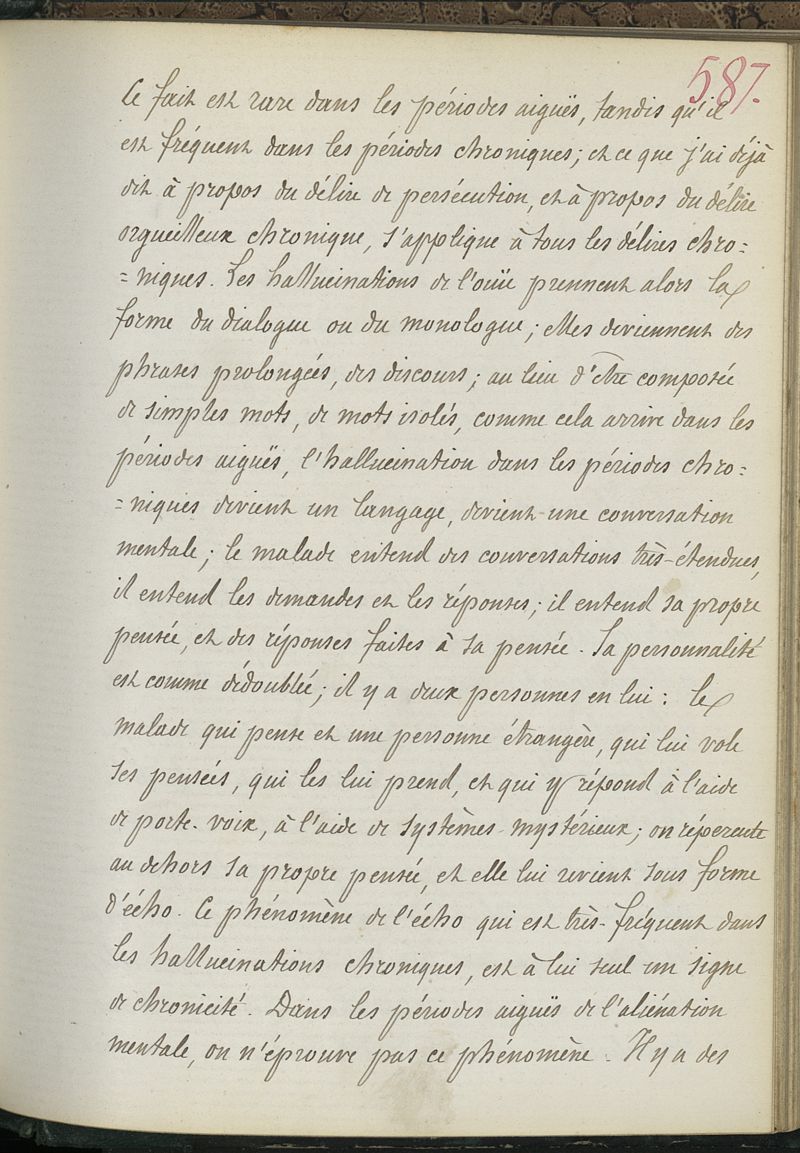 587.
Ce fait est rare dans les périodes aiguës, tandis qu'il
est fréquent dans les périodes chroniques; et ce que j'ai déjà
dit à propos du délire de persécution, et à propos du délire
orgueilleux chronique, s'applique à tous les délires chro=
=niques. Les hallucinations de l'ouïe prennent alors la
forme du dialogue ou du monologue; elles deviennent des
phrases prolongées, des discours; au lieu d'être composée
de simples mots, de mots isolés, comme cela arrive dans les
périodes aiguës, l'hallucination dans les périodes chro=
=niques devient un langage, devient une conversation
mentale; le malade entend des conversations très-étendues,
il entend les demandes et les réponses; il entend sa propre
pensée, et des réponses faites à sa pensée. Sa personnalité
est comme dédoublée; il y a deux personnes en lui: le
malade qui pense et une personne étrangère, qui lui vole
ses pensées, qui les lui prend, et qui y répond à l'aide
de porte-voix, à l'aide de systèmes mystérieux; on répercute
au dehors sa propre pensée, et elle lui revient sous forme
d'écho. Ce phénomène de l'écho qui est très-fréquent dans
les hallucinations chroniques, est à lui seul un signe
de chronicité. Dans les périodes aiguës de l'aliénation
mentale, on n'éprouve pas ce phénomène. Il y a des